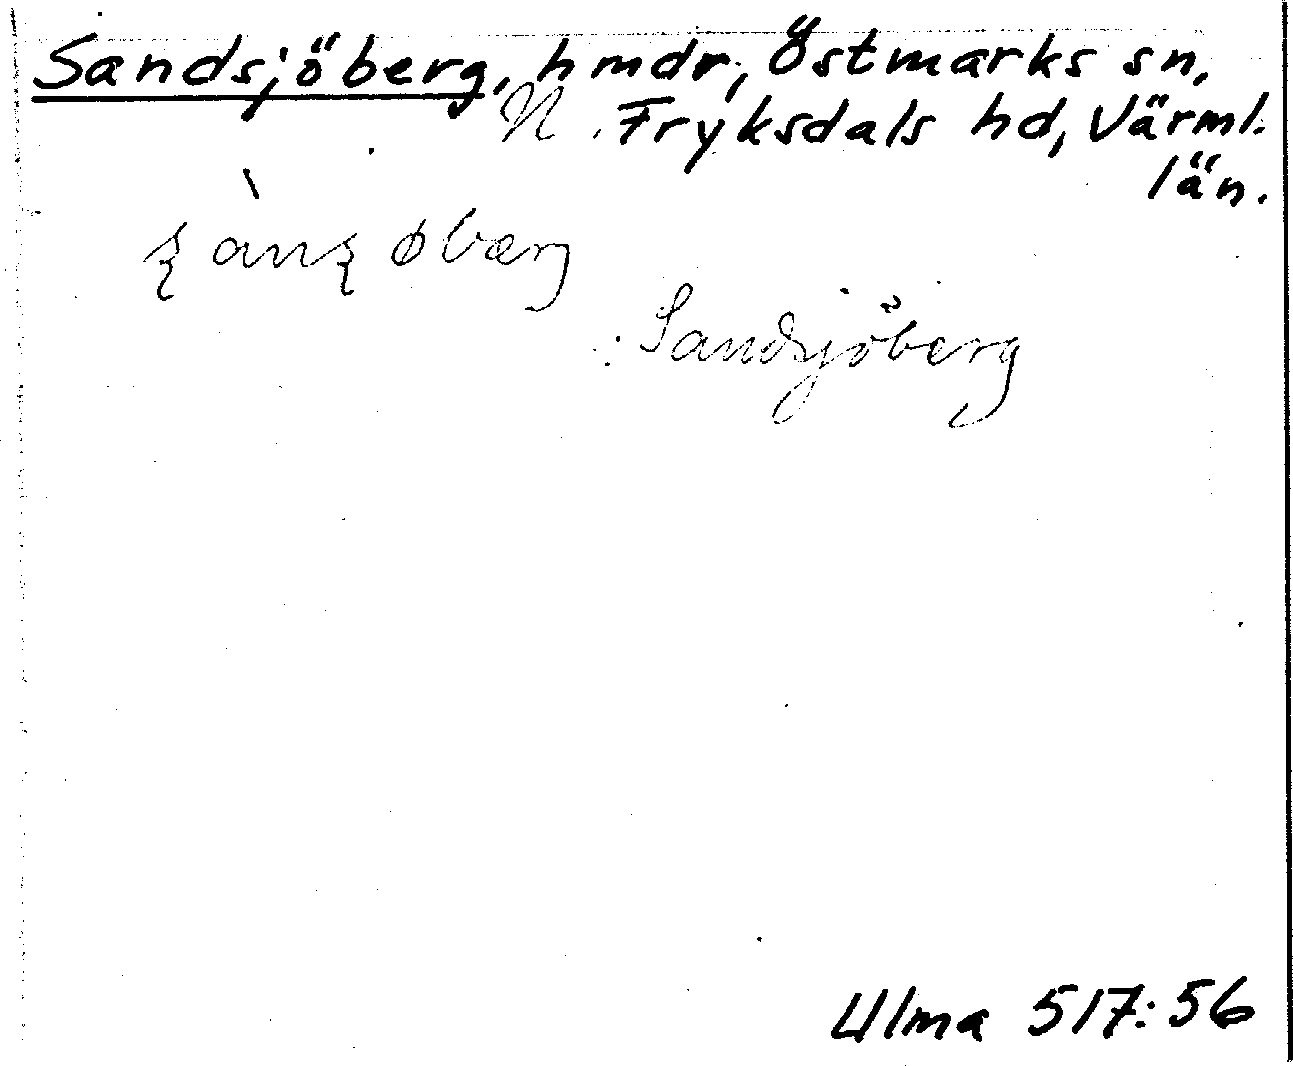 Sandsjöberg, hmdr, Östmarks sn,
N. Fryksdals hd, Värml.
län.
Sandsjöberg
Ulma 517:56